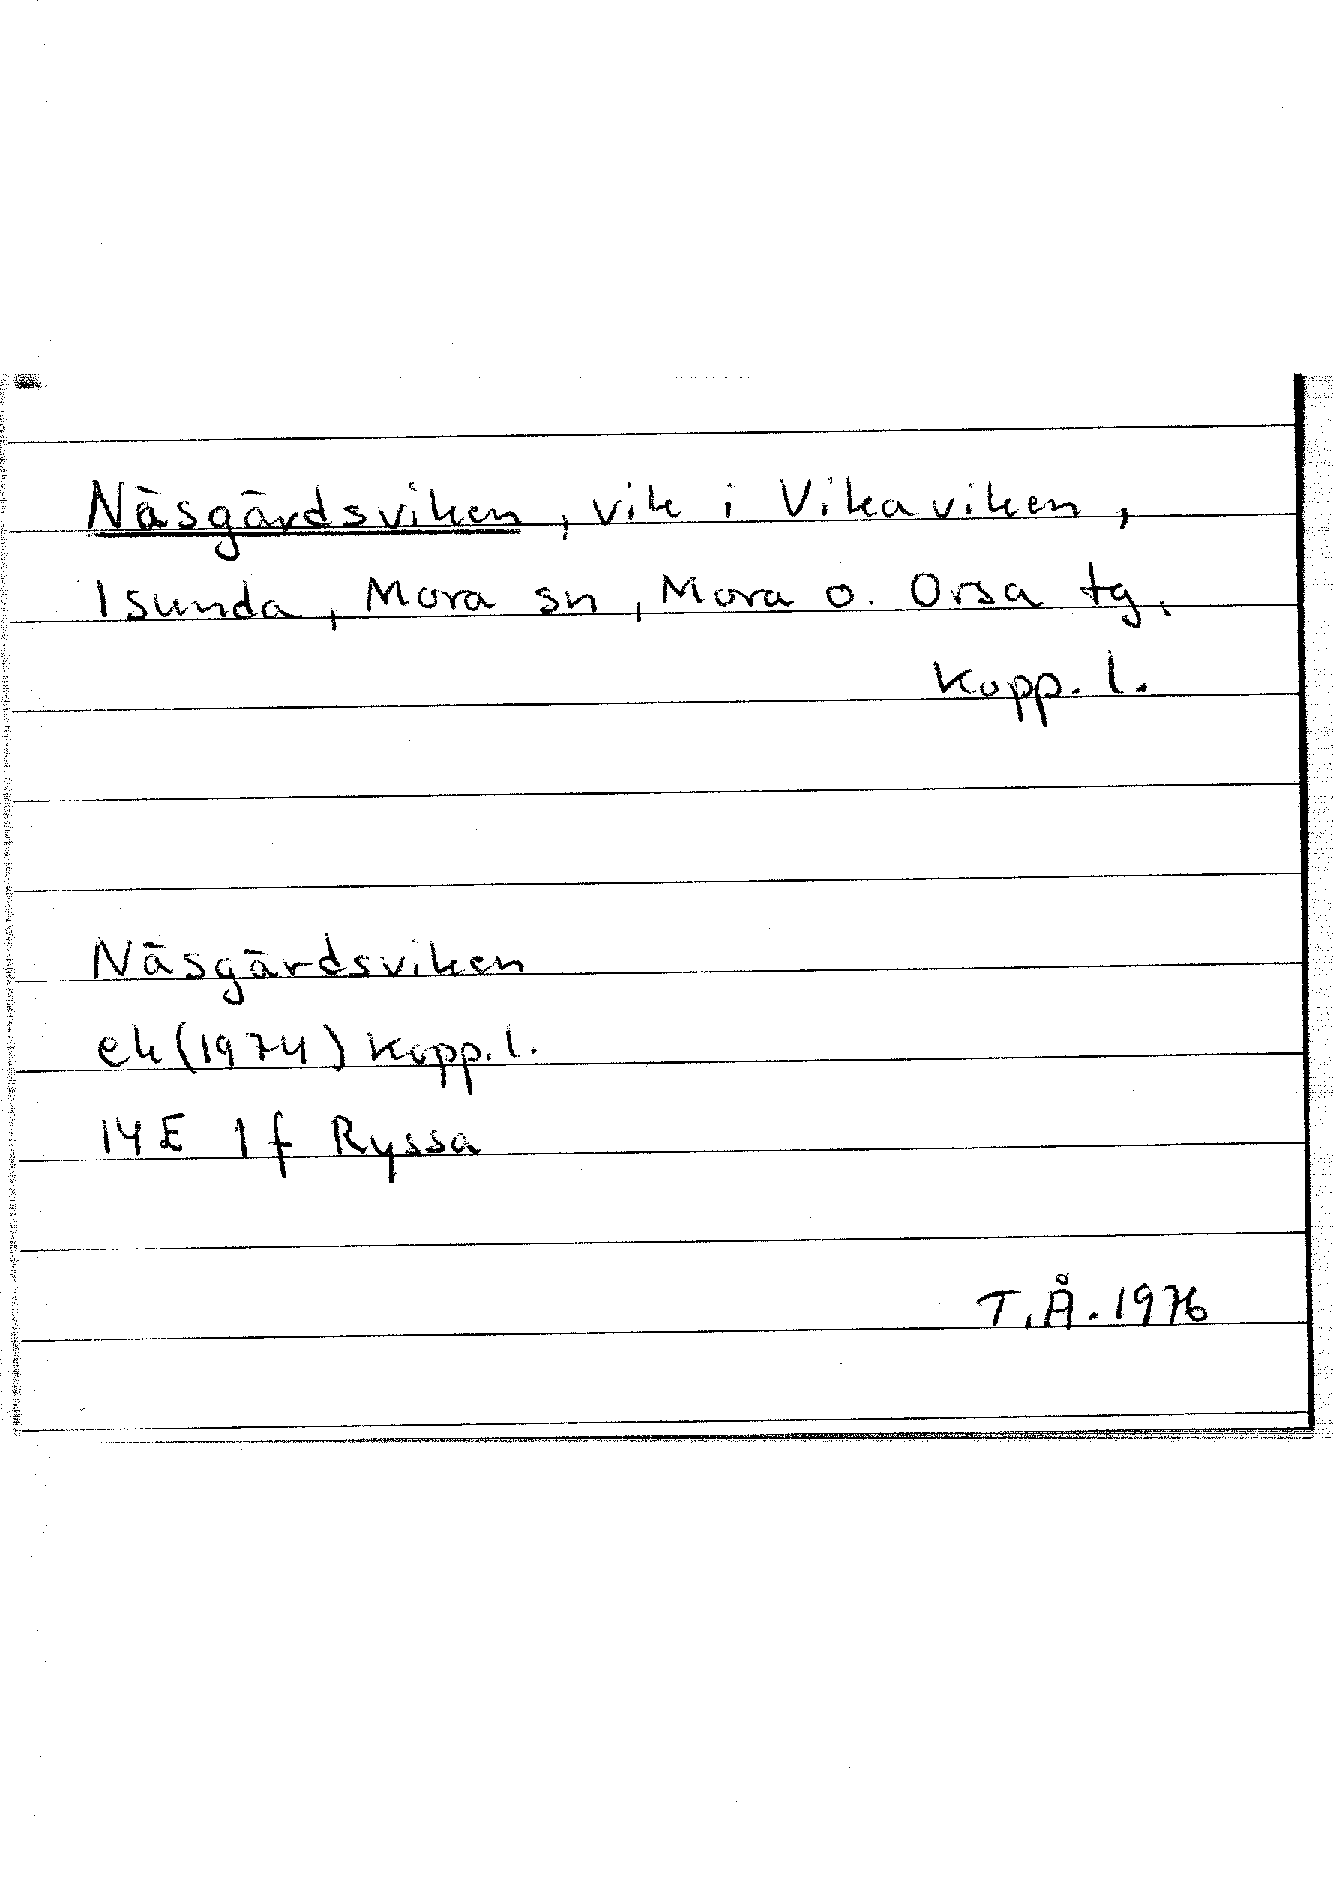 Näsgärdsviken, vik i Vikaviken,
Isunda, Mora sn, Mora o. Orsa tg.
Kopp. l.
Näsgärdsviken
ek (1974) Kopp. l.
14E 1f Ryssa
T.Å. 1976